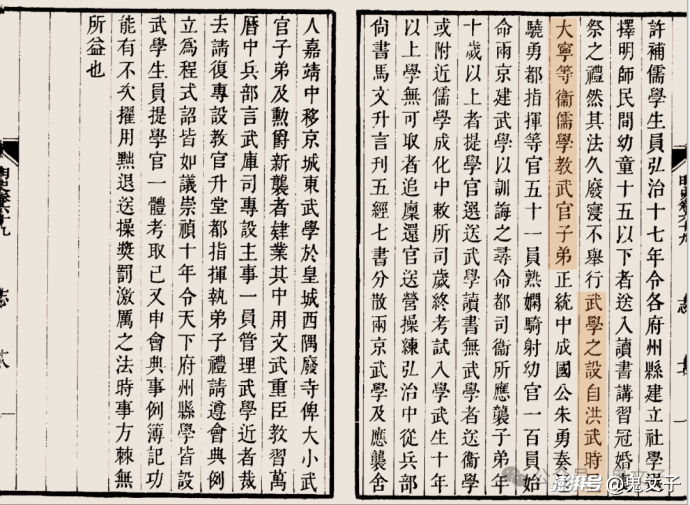 許補儒學生員弘治十七年令各府州縣建立社學選
擇明師民間幼童十五以下者送入讀書講習冠婚喪
祭之禮然其法久廢寖不舉行武學之設自洪武時置
大寧等衞儒學教武官子弟正統中成國公朱勇奏選
驍勇都指揮等官五十一員熟嫻騎射幼官一百員始
命兩京建武學以訓誨之尋命都司衞所應襲子弟年
十歲以上者提學官選送武學讀書無武學者送衞學
或附近儒學成化中敕所司歲終考試入學武生十年
以上學無可取者追廩還官送營操練弘治中從兵部
尚書馬文升言刊五經七書分散兩京武學及應襲舍
人嘉靖中移京城東武學於皇城西隅廢寺俾大小武
官子弟及勳爵新襲者肄業其中用文武重臣教習萬
曆中兵部言武庫司專設主事一員管理武學近者裁
去請復專設教官升堂都指揮執弟子禮請遵會典例
立爲程式詔皆如議崇禎十年令天下府州縣學皆設
武學生員提學官一體考取已又申會典事例簿記功
能有不次擢用黜退送操獎罰激厲之法時事方棘無
所益也
明史卷六十九
志
澎湃号@堄文子